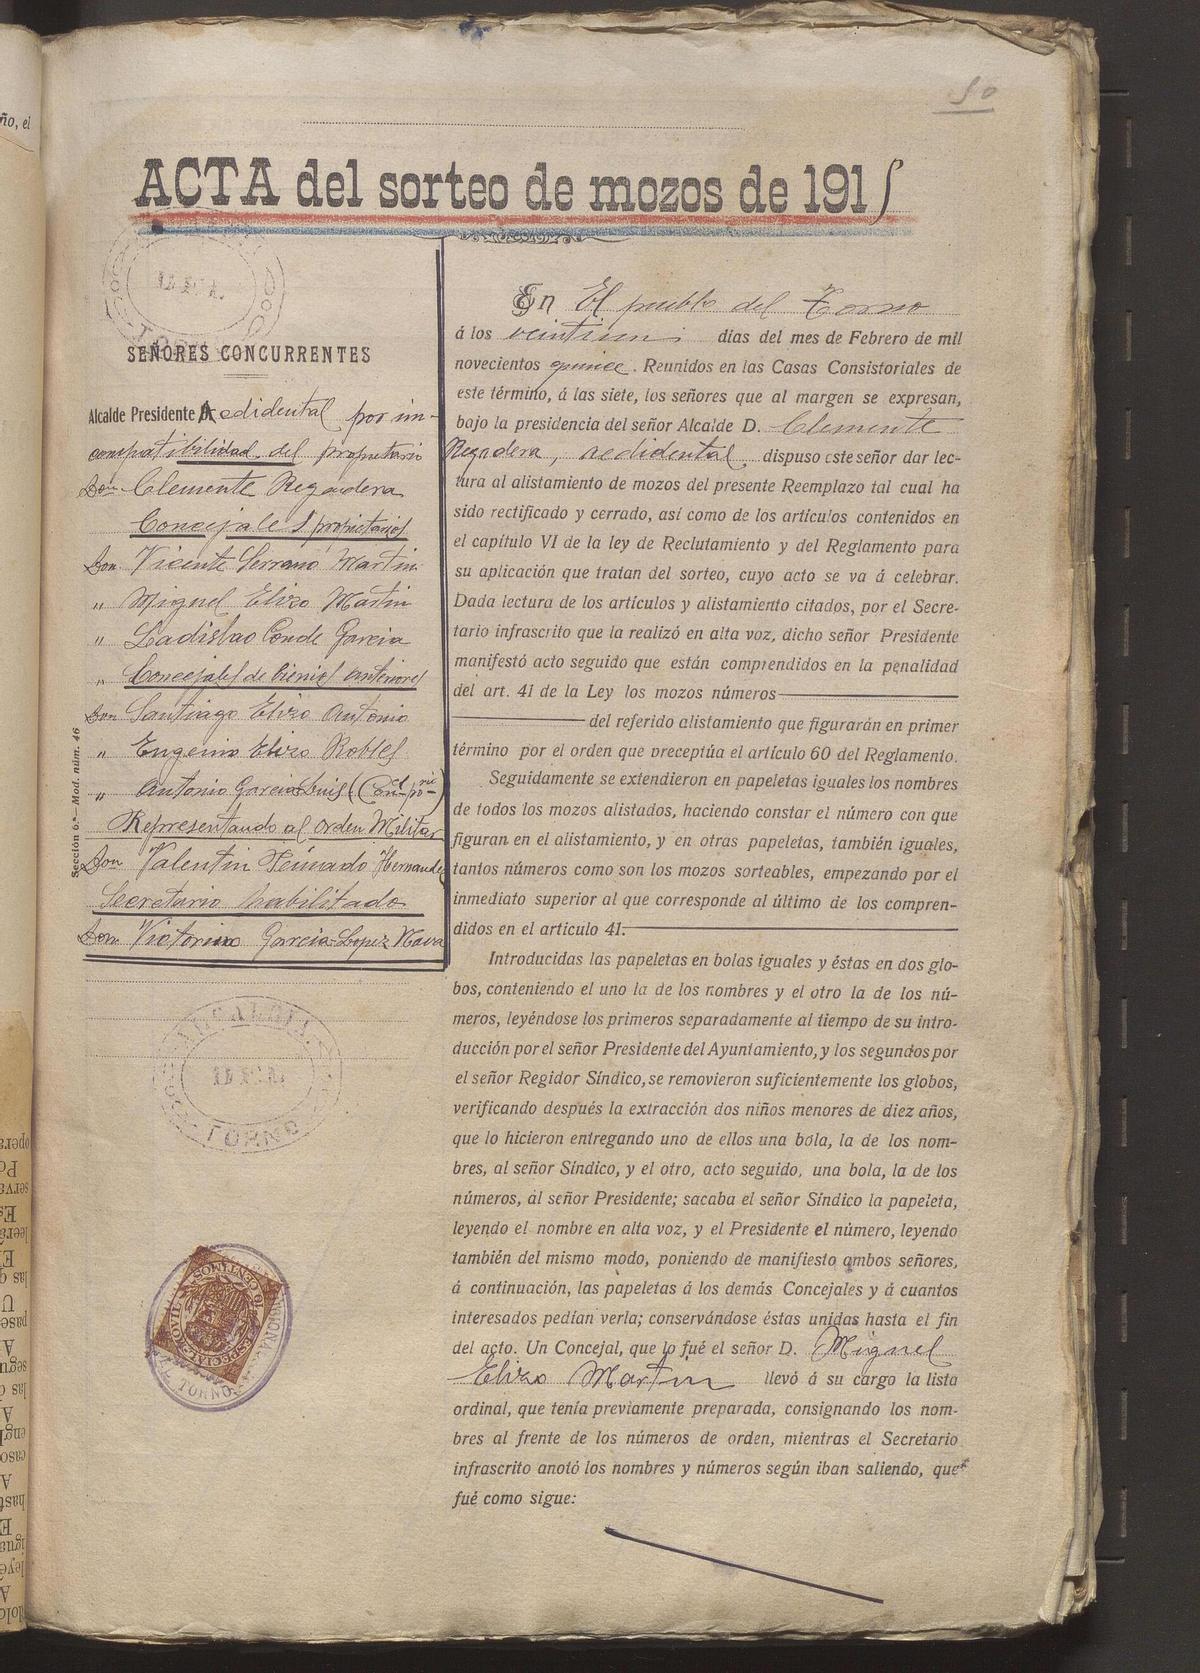 50
ACTA del sorteo de mozos de 1915
SEÑORES CONCURRENTES
Alcalde Presidente Acedidental por in-
compatibilidad del propietario
Don Clemente Regadera
Concejales propietarios
Don Vicente Serrano Martin
" Miguel Elizo Martin
" Ladislao Conde Garcia
" Concejales de bienios anteriores
Don Santiago Elizo Antonio
" Eugenio Elizo Robles
" Antonio Garcia Luis
Representando al Orden Militar
Don Valentin Hernandez
Secretario habilitado
Don Victorino Garcia Lopez Nava
Sección 6.ª—Mod. núm. 46
ALCALDIA
TORNO
ESPECIAL MOVIL
10 CENTIMOS
TORNO
En El pueblo del Torno
á los veintiun días del mes de Febrero de mil
novecientos quince. Reunidos en las Casas Consistoriales de
este término, á las siete, los señores que al margen se expresan,
bajo la presidencia del señor Alcalde D. Clemente
Regadera, acedidental dispuso este señor dar lec-
tura al alistamiento de mozos del presente Reemplazo tal cual ha
sido rectificado y cerrado, así como de los artículos contenidos en
el capítulo VI de la ley de Reclutamiento y del Reglamento para
su aplicación que tratan del sorteo, cuyo acto se va á celebrar.
Dada lectura de los artículos y alistamiento citados, por el Secre-
tario infrascrito que la realizó en alta voz, dicho señor Presidente
manifestó acto seguido que están comprendidos en la penalidad
del art. 41 de la Ley los mozos números
del referido alistamiento que figurarán en primer
término por el orden que preceptúa el artículo 60 del Reglamento.
Seguidamente se extendieron en papeletas iguales los nombres
de todos los mozos alistados, haciendo constar el número con que
figuran en el alistamiento, y en otras papeletas, también iguales,
tantos números como son los mozos sorteables, empezando por el
inmediato superior al que corresponde al último de los compren-
didos en el articulo 41.
Introducidas las papeletas en bolas iguales y éstas en dos glo-
bos, conteniendo el uno la de los nombres y el otro la de los nú-
meros, leyéndose los primeros separadamente al tiempo de su intro-
ducción por el señor Presidente del Ayuntamiento, y los segundos por
el señor Regidor Síndico, se removieron suficientemente los globos,
verificando después la extracción dos niños menores de diez años,
que lo hicieron entregando uno de ellos una bola, la de los nom-
bres, al señor Síndico, y el otro, acto seguido, una bola, la de los
números, al señor Presidente; sacaba el señor Síndico la papeleta,
leyendo el nombre en alta voz, y el Presidente el número, leyendo
también del mismo modo, poniendo de manifiesto ambos señores,
á continuación, las papeletas á los demás Concejales y á cuantos
interesados pedían verla; conservándose éstas unidas hasta el fin
del acto. Un Concejal, que lo fué el señor D. Miguel
Elizo Martin llevó á su cargo la lista
ordinal, que tenía previamente preparada, consignando los nom-
bres al frente de los números de orden, mientras el Secretario
infrascrito anotó los nombres y números según iban saliendo, que
fué como sigue: